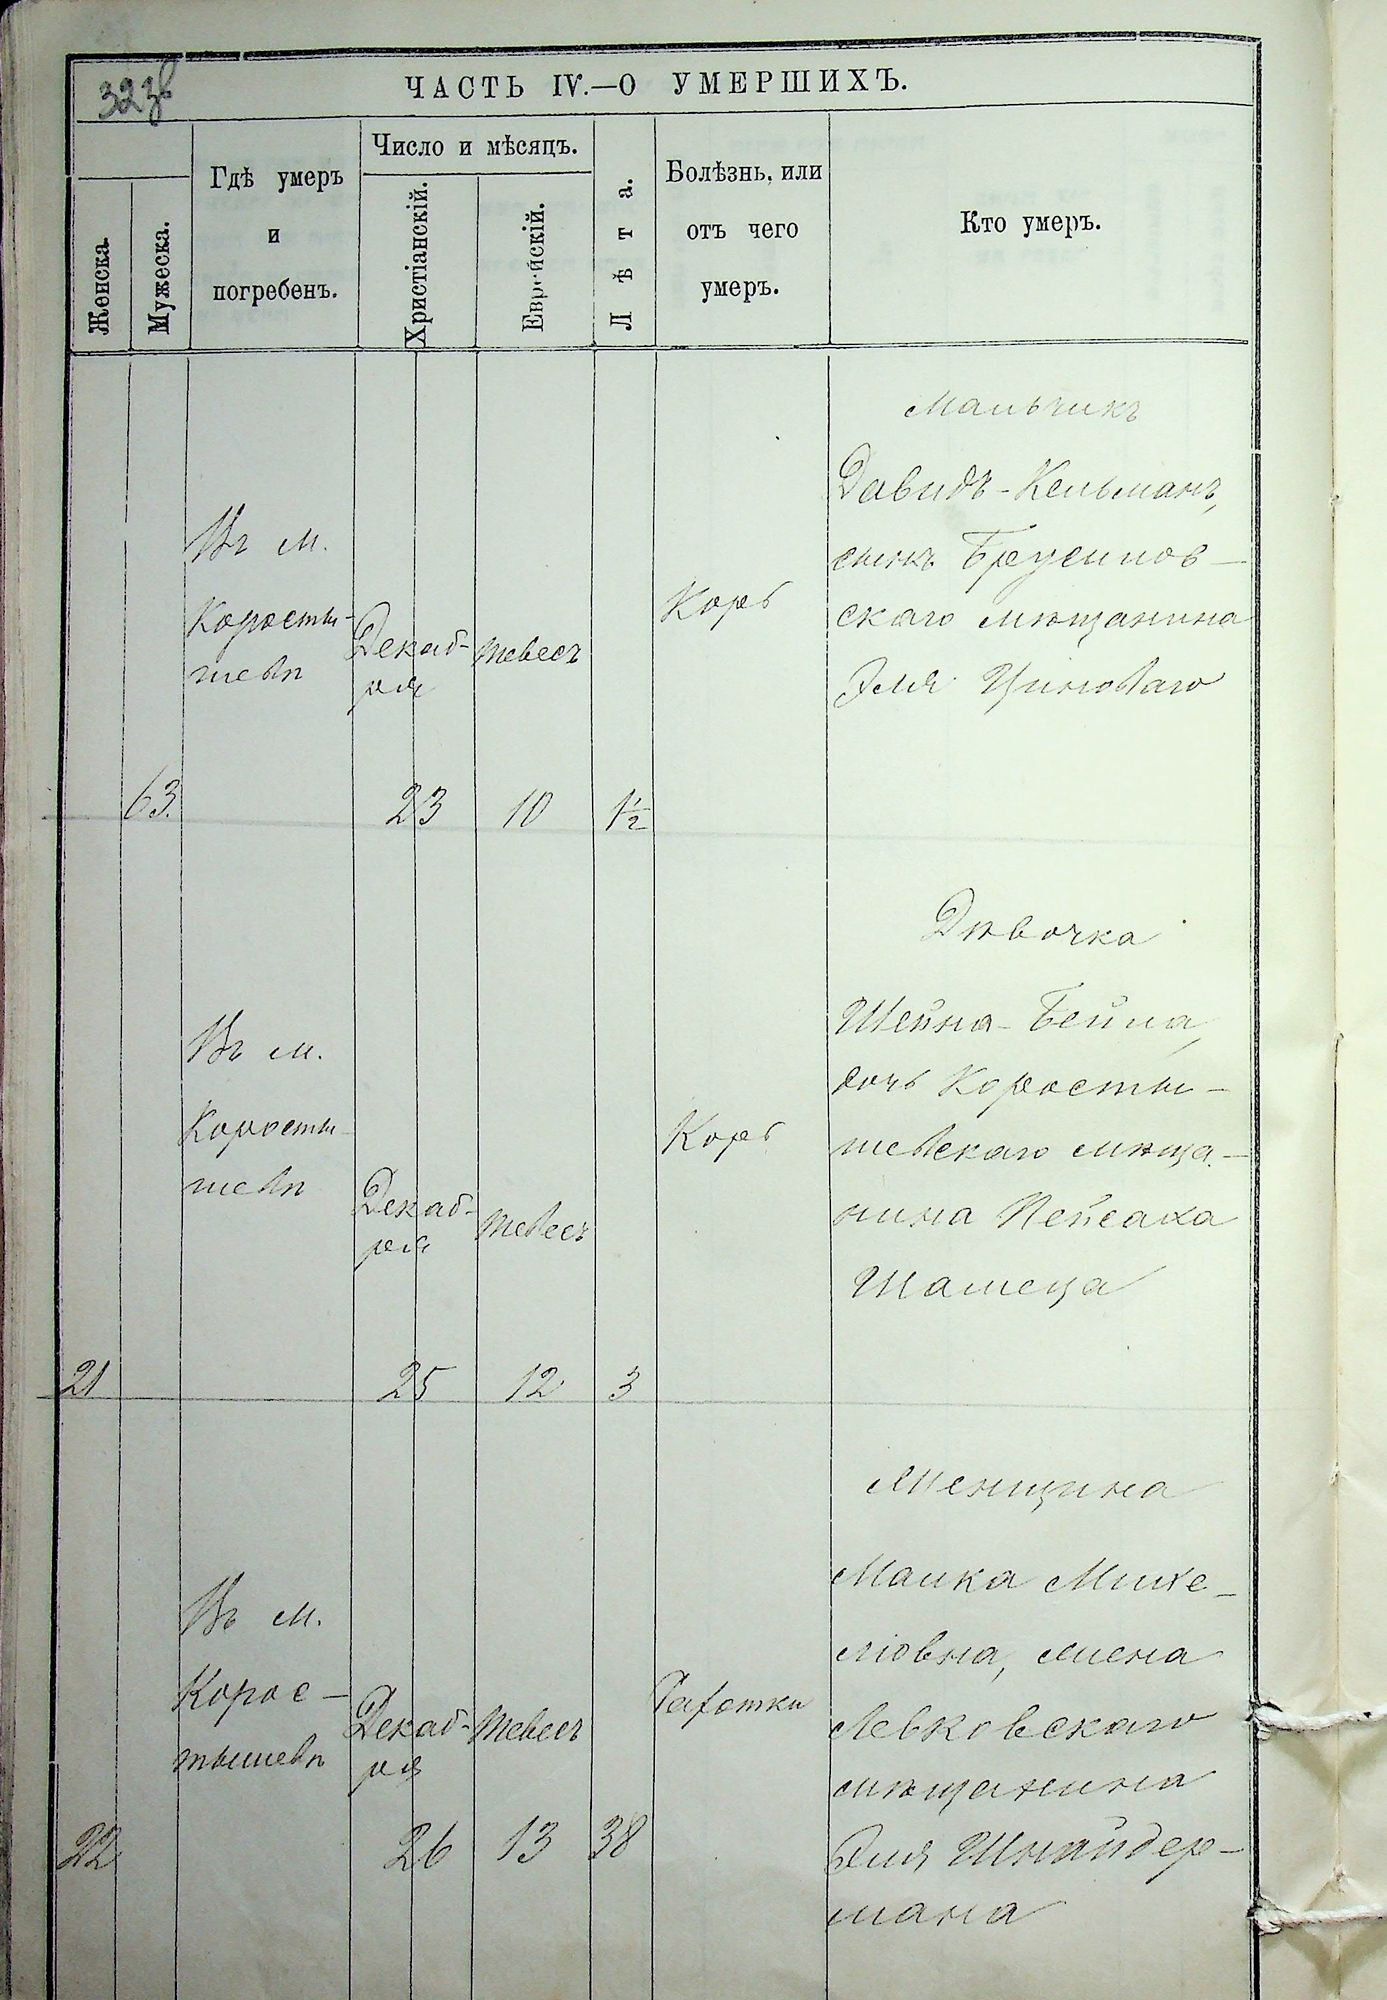 323об
ЧАСТЬ IV.—О УМЕРШИХЪ.
Женска.
Мужеска.
Гдѣ умеръ
и
погребенъ.
Число и мѣсяцъ.
Христіанскій.
Еврейскій.
Лѣта.
Болѣзнь, или
отъ чего
умеръ.
Кто умеръ.
63.
Въ м.
Коросты-
шевѣ
Декаб-
ря
23
Тевесъ
10
1½
Корь
Мальчикъ
Давидъ-Кельманъ,
сынъ Брусилов-
скаго мѣщанина
Эля Циноваго
21
Въ м.
Коросты-
шевѣ
Декаб-
ря
25
Тевесъ
12
3
Корь
Дѣвочка
Шейна-Бейла,
дочь Коросты-
шевскаго мѣща-
нина Пейсаха
22
Въ м.
Корос-
тышевѣ
Декаб-
ря
26
Тевесъ
13
38
Чахотки
Женщина
Малка Михе-
лювна, жена
Левковскаго
мѣщанина
Эля Шнайдер-
мана